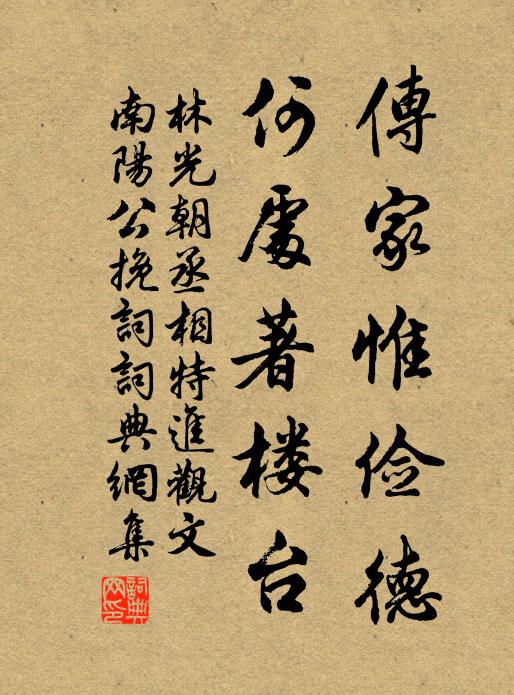 傳家惟俭德
何處著楼台
林光朝丞相特進觀文
南陽公挽詞詞典網集
詞典网印